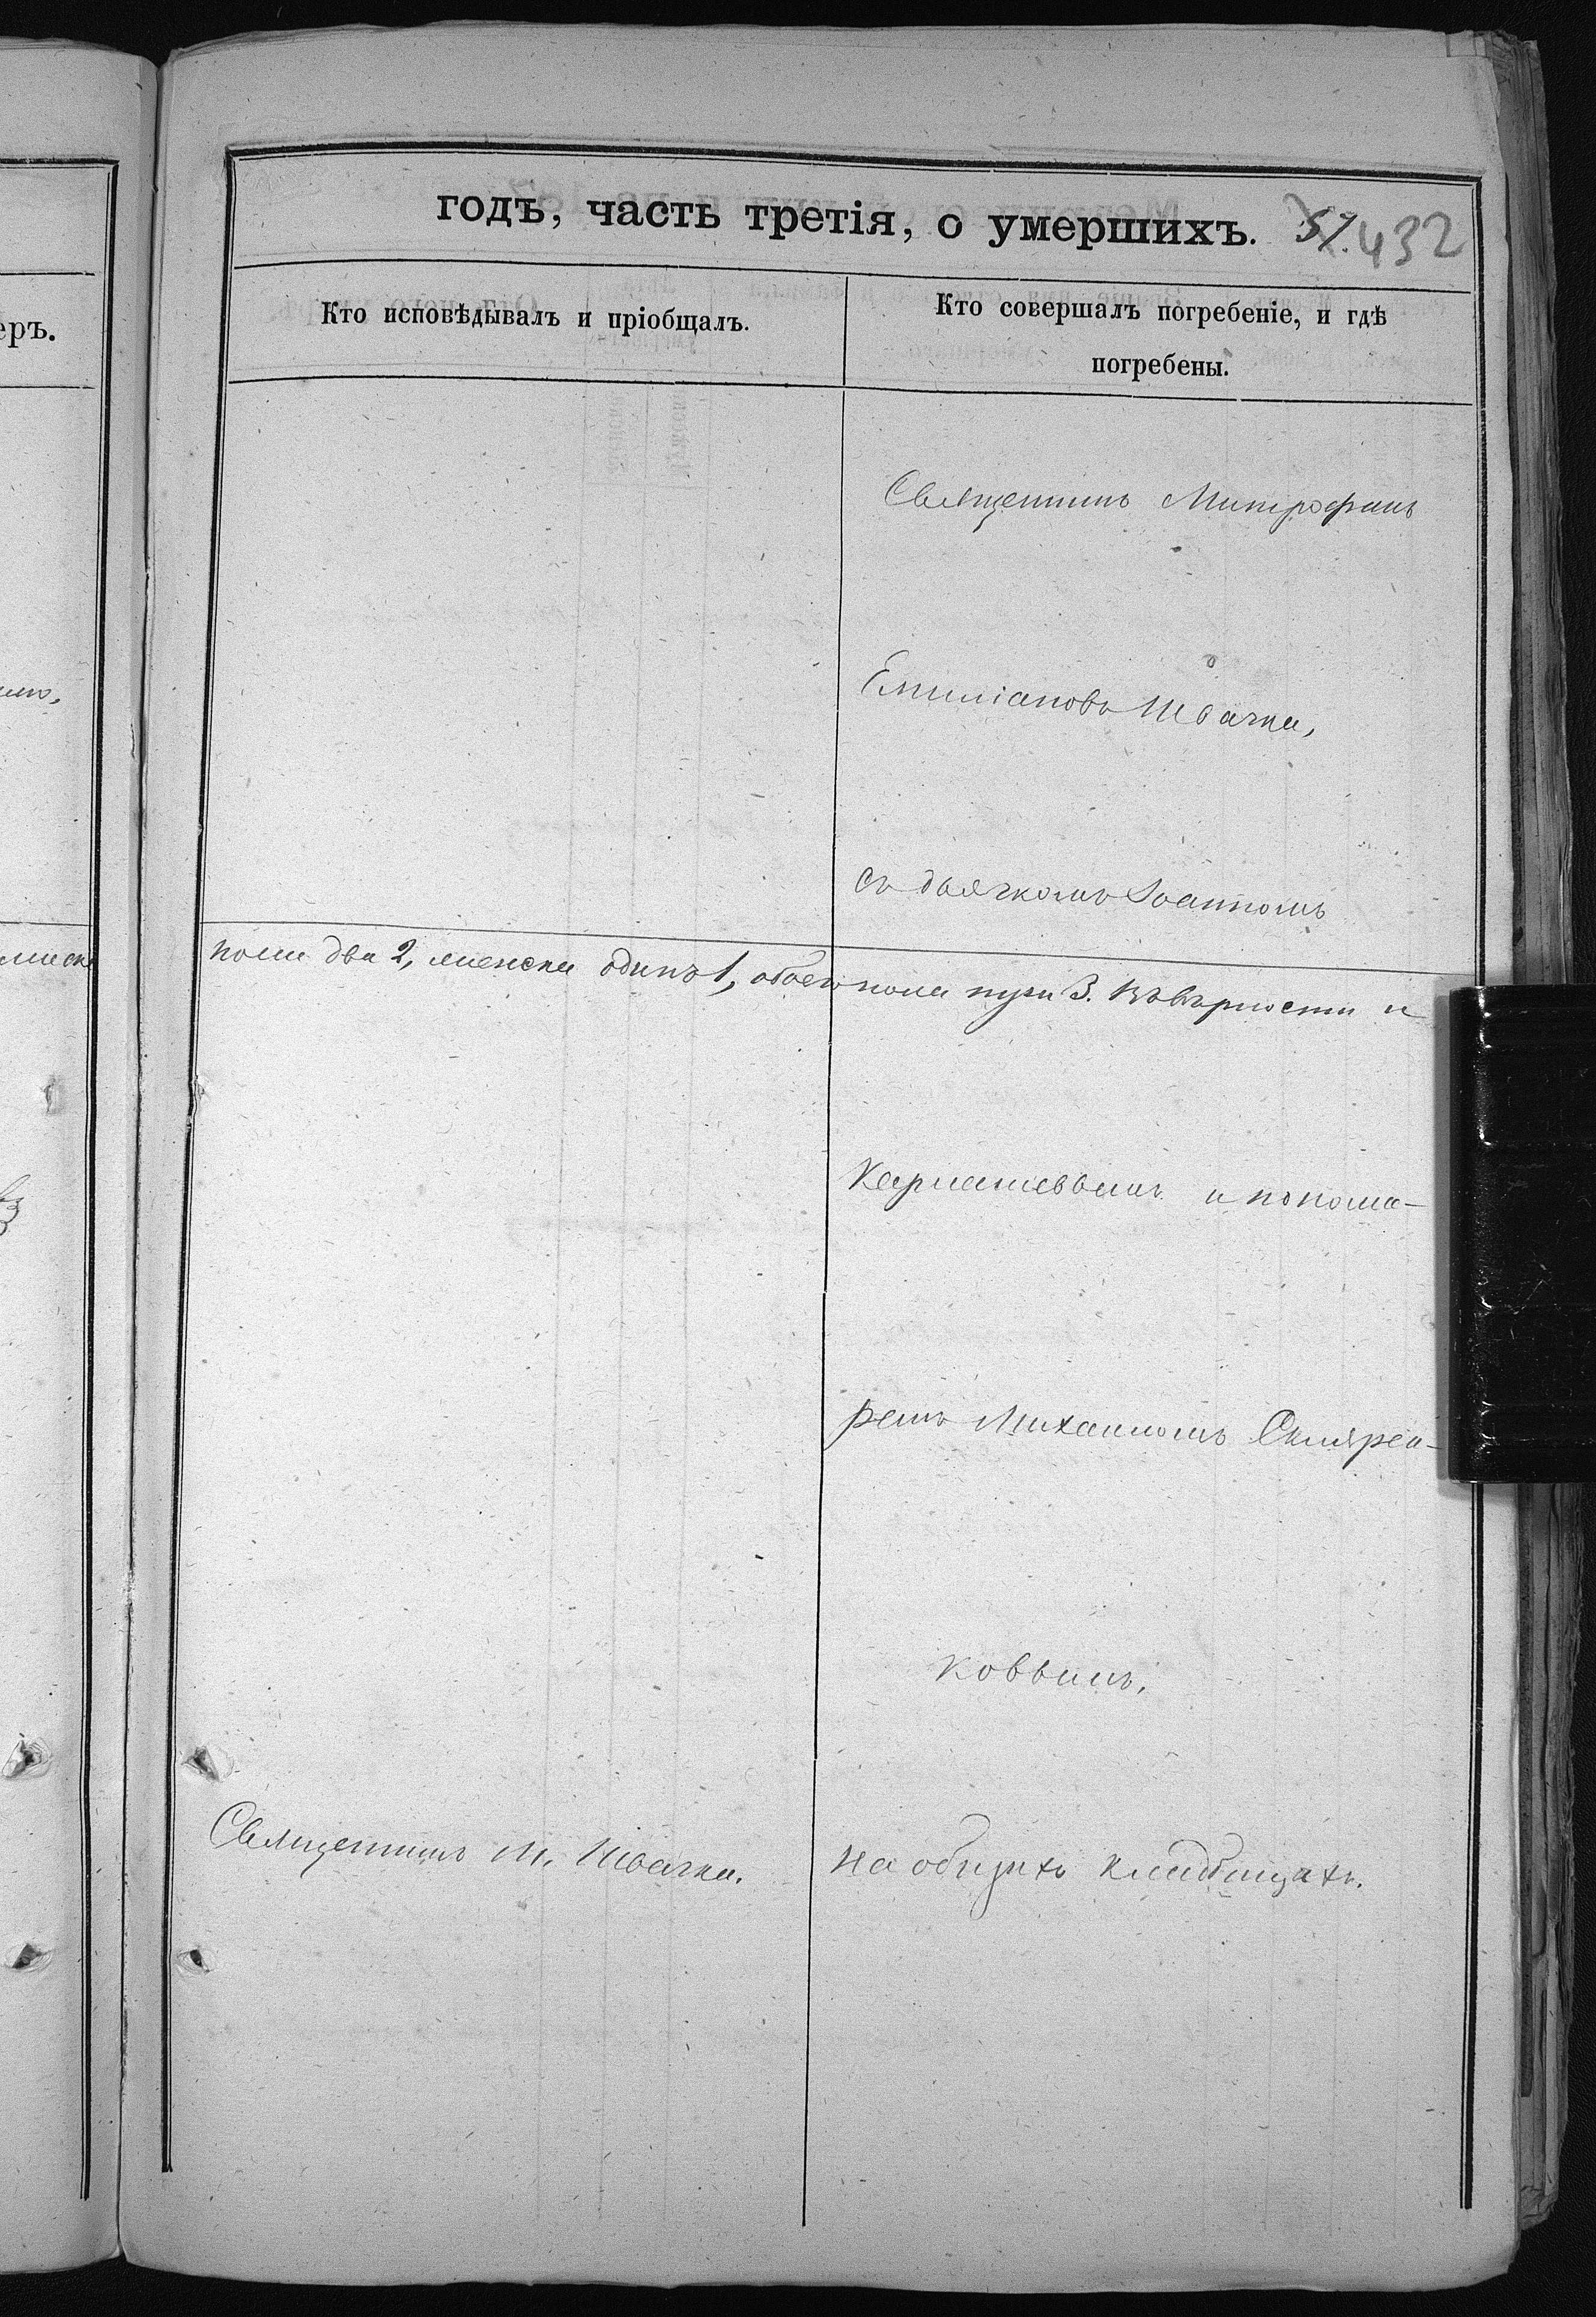 годъ, часть третія, о умершихъ. 57. 432
еръ.
Кто исповѣдывалъ и пріобщалъ.
Кто совершалъ погребеніе, и гдѣ
погребены.
Священникъ Митрофанъ
Емиліановъ Швачка,
съ дьячкомъ Іоанномъ
пола два 2, женска одинъ 1, обоего пола три 3. Въ вѣрности и
Кармашевымъ и понома-
ремъ Михаиломъ Скляре-
ковымъ,
Священникъ М. Швачка.
на общихъ кладбищахъ.